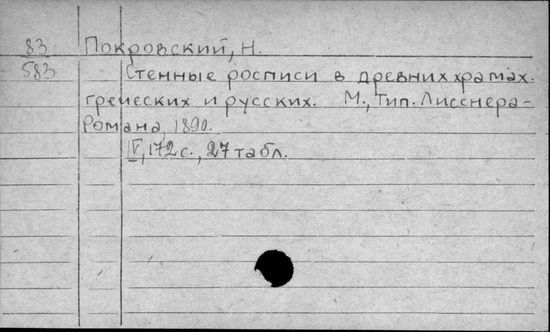 83 Покровский, Н.
583 Стенные росписи в древних храмах
греческих и русских. М., Тип. Лисснера-
Романа, 1890.
IV, 172 с., 27 табл.